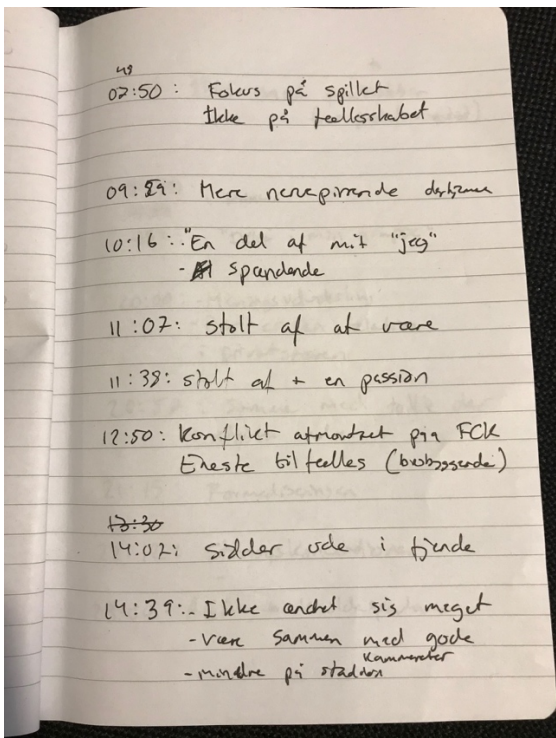 48
07:50: Fokus på spillet
Ikke på feellesskabet
09:29: Mere nervepirrende
10:16: "En del af mit "jeg"
- spændende
11:07: stolt af at være
11:38: stolt af + en passion
12:50: Konflikt pga FCK
Eneste til feelles
13:30
14:02: Sidder ude i
14:39: - Ikke ændret sig meget
- være sammen med gode
kammerater
- mindre på stadion